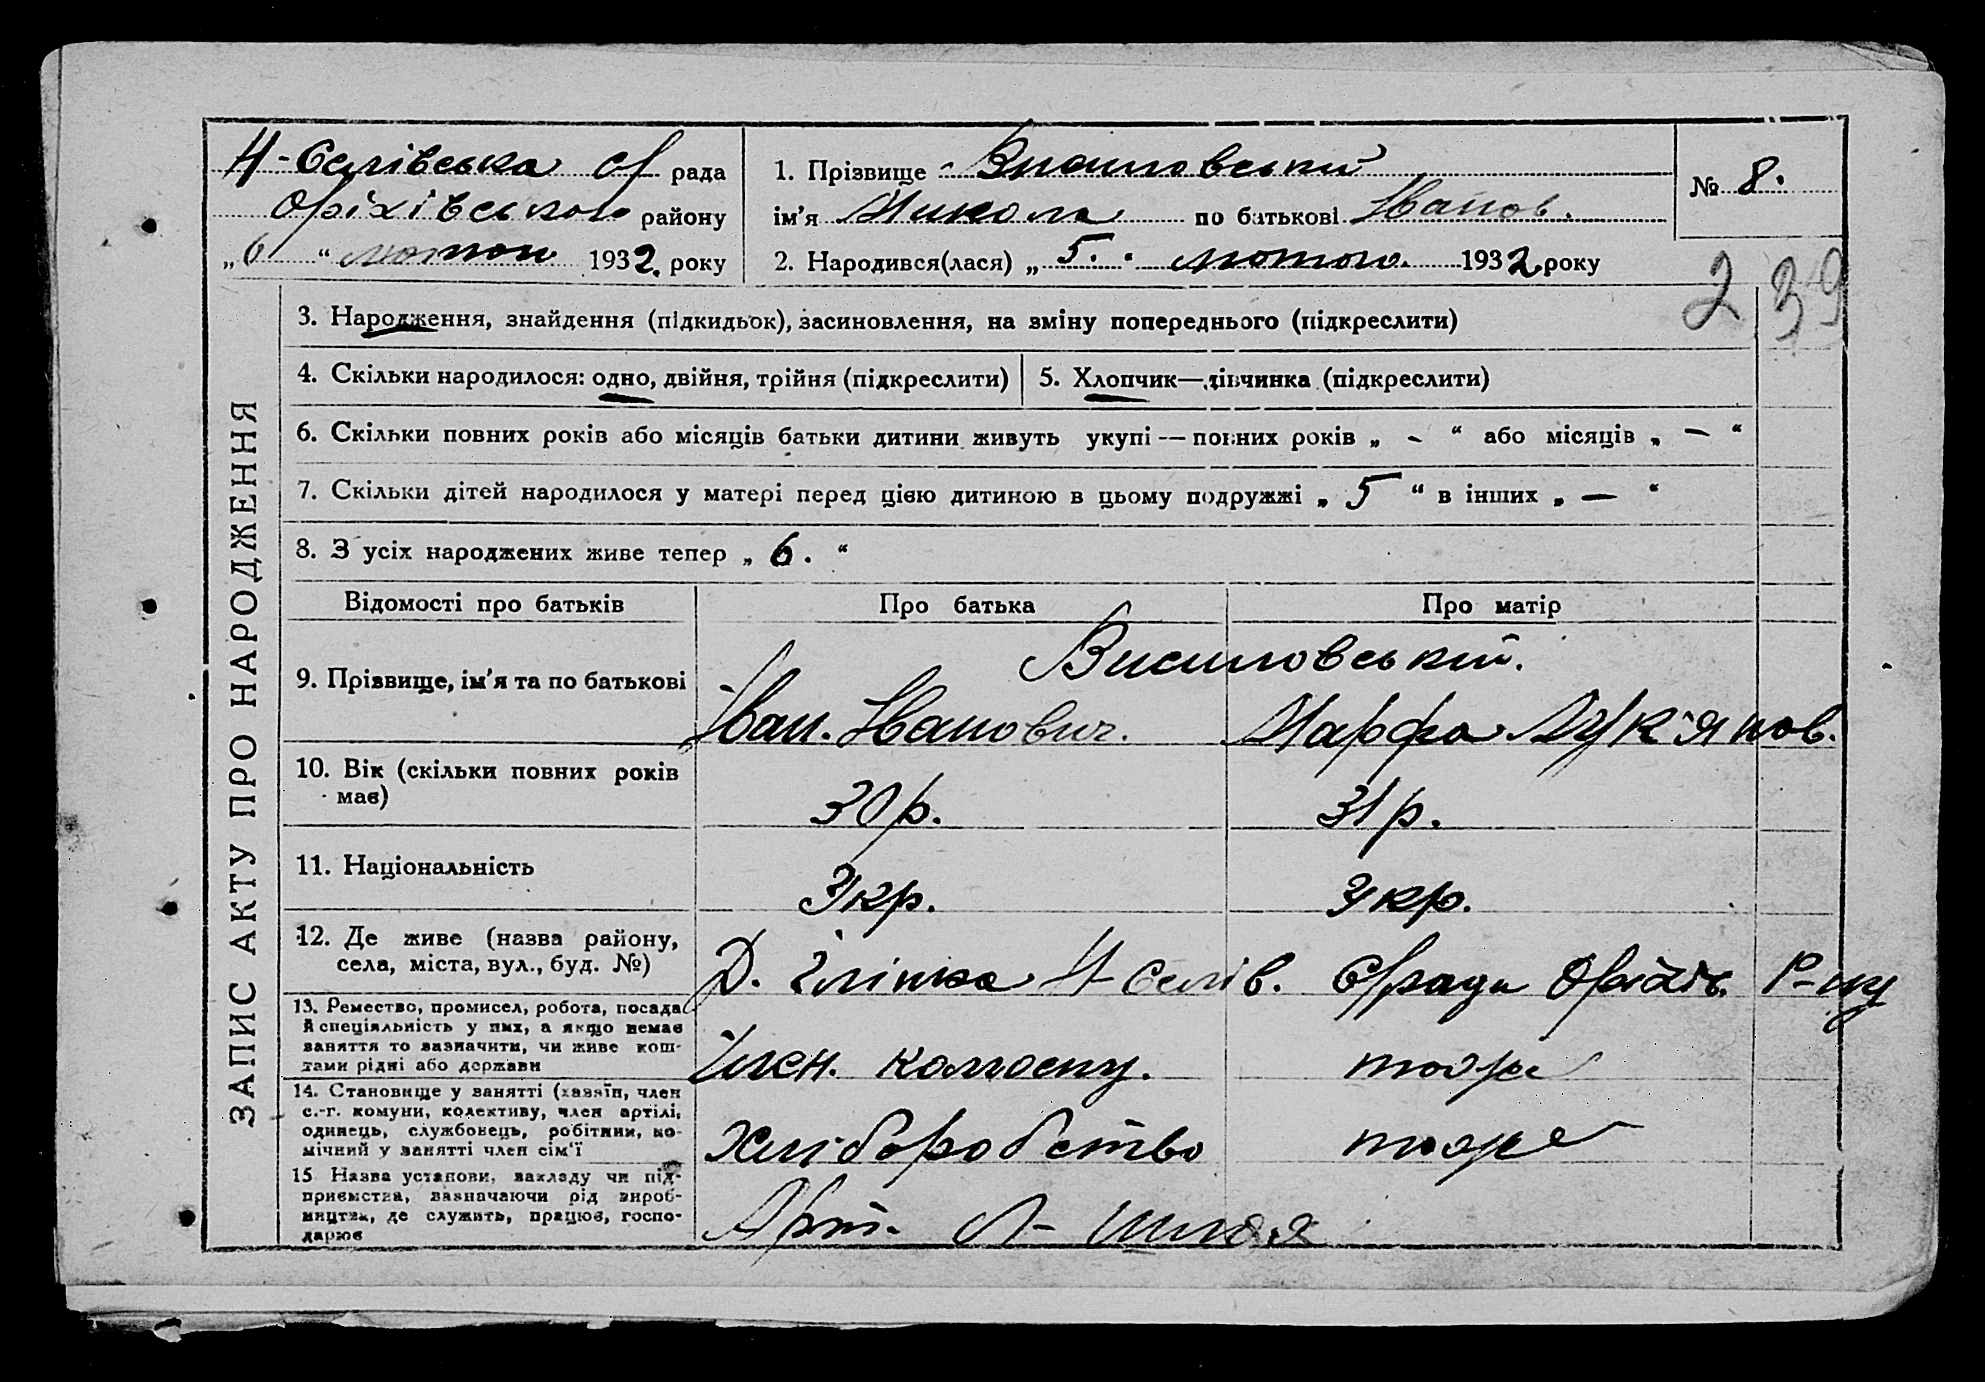 Н-Селівська с/ рада
Оріхівського району
„6“ лютого 1932. року
1. Прізвище
ім'я Микола по батькові Іванов.
2. Народився(лася) „5.“ лютого 1932 року
№ 8.
239
ЗАПИС АКТУ ПРО НАРОДЖЕННЯ
3. Народження, знайдення (підкидьок), засиновлення, на зміну попереднього (підкреслити)
4. Скільки народилося: одно, двійня, трійня (підкреслити)
5. Хлопчик—дівчинка (підкреслити)
6. Скільки повних років або місяців батьки дитини живуть укупі — повних років „ - “ або місяців „ — “
7. Скільки дітей народилося у матері перед цією дитиною в цьому подружжі „ 5 “ в інших „ — “
8. З усіх народжених живе тепер „ 6. “
Відомості про батьків
Про батька
Про матір
9. Прізвище, ім'я та по батькові
Іван Іванович.
Марфа Лук'янов.
10. Вік (скільки повних років має)
30 р.
31 р.
11. Національність
Укр.
Укр.
12. Де живе (назва району,
села, міста, вул., буд. №)
Н Селів. с/ради Оріхів. р-ну
13. Ремество, промисел, робота, посада
й спеціяльність у них, а якщо немає
заняття то зазначити, чи живе кош-
тами рідні або держави
Член. колгоспу.
тоже
14. Становище у занятті (хазяїн, член
с.-г. комуни, колективу, член артілі,
одинець, службовець, робітник, по-
мічний у занятті член сім'ї
Хліборобство
тоже
15 Назва установи, закладу чи під-
приємства, зазначаючи рід вироб-
ництва, де служить, працює, госпо-
дарює
Арт.